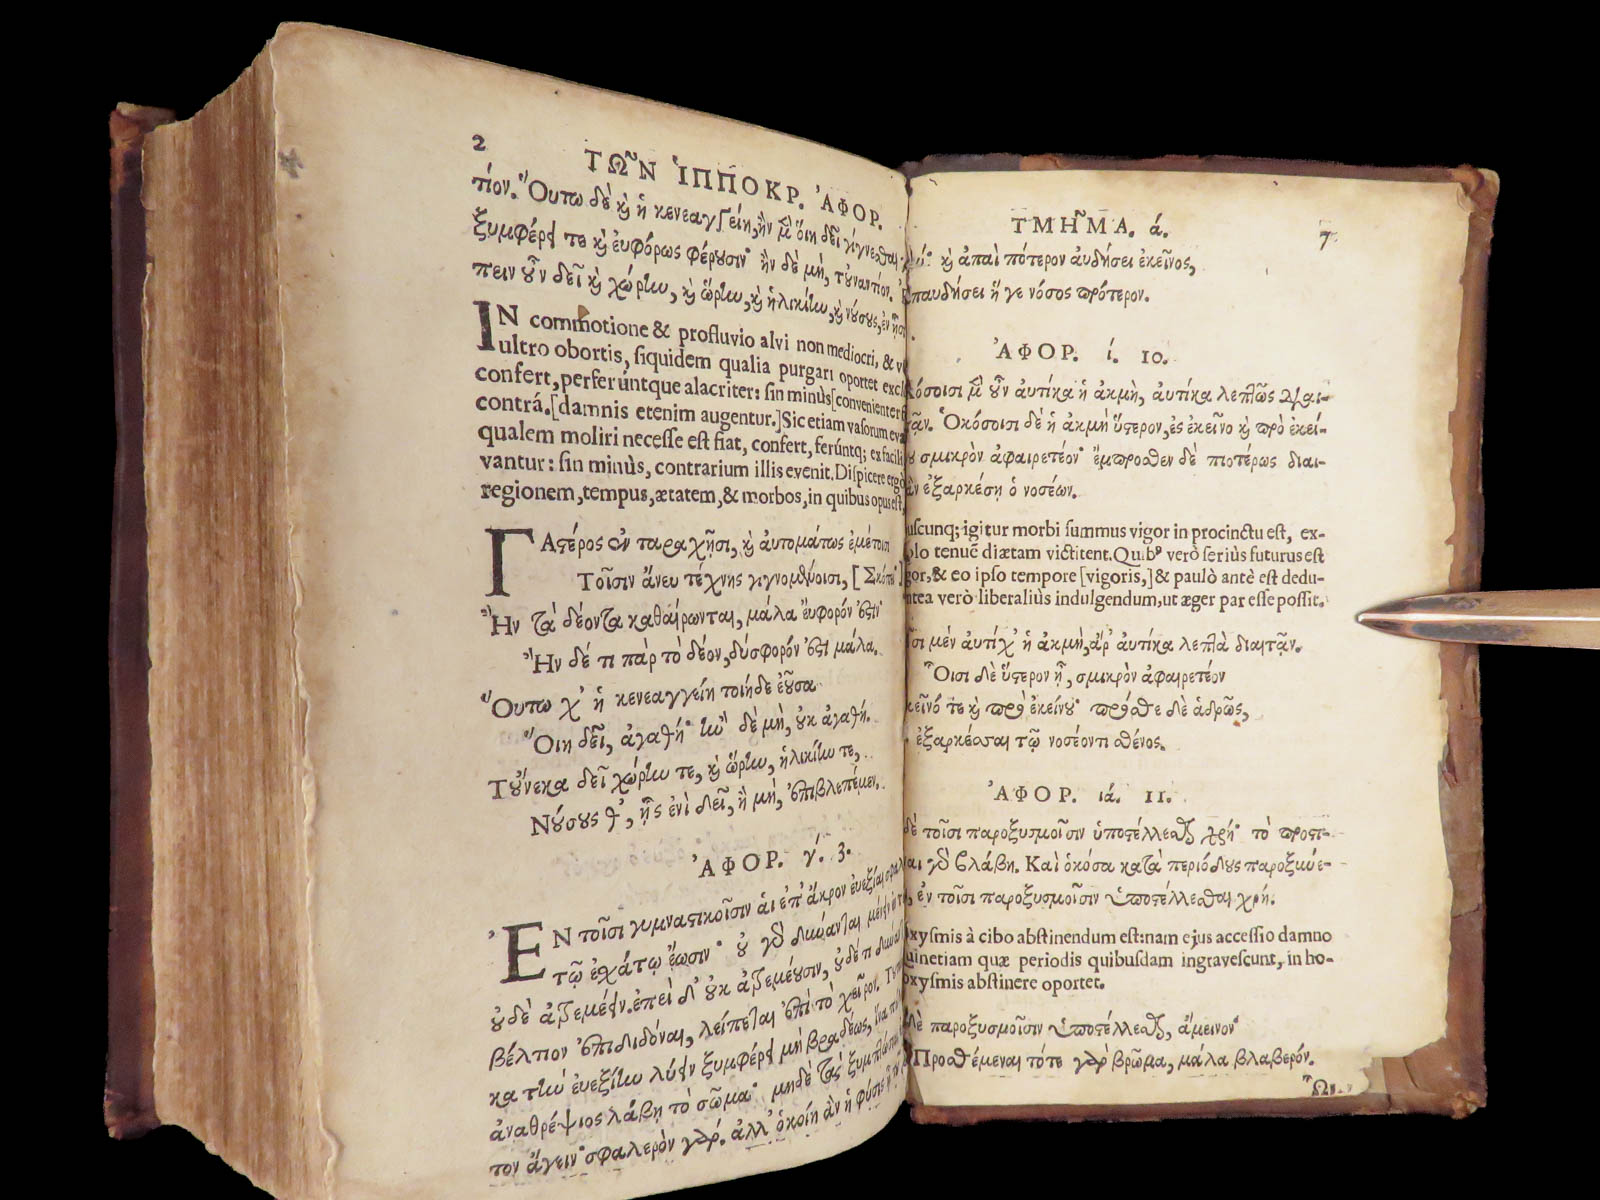 2
ΤΩ͂Ν ἹΠΠΟΚΡ. ἈΦΟΡ.
τίον. Οὕτω δὲ κỳ ἡ κενεαγγείη, ἢν μ̀ οἵη δεῖ γίγνεσθαι
ξυμφέρει τε κỳ εὐφόρως φέρουσιν· ἢν δὲ μὴ, τοὐναντίον.
πειν οὖν δεῖ κỳ χώρίω, κỳ ὥρίω, κỳ ἡλικίίω, κỳ νούσους, ἐν ᾗσι
IN commotione & profluvio alvi non mediocri, &
ultro obortis, siquidem qualia purgari oportet
confert, perferúntque alacriter: sin minùs [convenienter
contrá. [damnis etenim augentur.] Sic etiam vasorum
qualem moliri necesse est fiat, confert, ferúntq; ex
vantur: sin minùs, contrarium illis evenit. Dispicere ergò
regionem, tempus, ætatem, & morbos, in quibus opus est,
ΓΑστέρος ὀν ταραχῇσι, κỳ αὐτομάτως ἐμέτοισι
Τοῖσιν ἄνευ τέχνης γιγνομένοισι, [Σκόπει]
Ἢν τὰ δέοντα καθαίρωνται, μάλα εὔφορόν ἐστιν·
Ἢν δέ τι πὰρ τὸ δέον, δύσφορόν ἐστι μάλα.
Οὕτω χ' ἡ κενεαγγείη τοιήδε ἐοῦσα
Οἵη δεῖ, ἀγαθή· ἢν δὲ μὴ, οὐκ ἀγαθή.
Τοὔνεκα δεῖ χώρίω τε, κỳ ὥρίω, ἡλικίίω τε,
Νούσους θ', ᾗς ἐνὶ δεῖ, ἢ μὴ, ἐπιβλεπέμεν.
ἈΦΟΡ. γ́. 3.
ἘΝ τοῖσι γυμναστικοῖσιν ἁι ἐπ' ἄκρον εὐεξίαι
τῷ ἐχάτῳ ἔωσιν· οὐ γὸ δύνανται μένειν
οὐδὲ ἀτρεμέειν. ἐπεὶ δ' οὐκ ἀτρεμέουσιν, οὐδέ τι
βέλτιον ἐπιδιδόναι, λείπεται ἐπὶ τὸ χεῖρον.
κα τίω εὐεξίίω λύειν ξυμφέρει μὴ βραδέως, ἵνα
ἀναθρέψιος λάβῃ τὸ σῶμα· μηδὲ τὰς
τον ἄγειν· σφαλερὸν γὸ. ἀλλ' ὁκοίη ἂν ἡ φύσις
ΤΜΗ͂ΜΑ. ά.
7
κỳ ἀπαὶ πότερον αὐδήσει ἐκεῖνος,
παυδήσει ἤ γε νόσος πρότερον.
ἈΦΟΡ. ί. 10.
κόσοισι μ̀ οὖν αὐτίκα ἡ ἀκμὴ, αὐτίκα λεπτῶς διαι-
τᾷν. Ὁκόσοισι δὲ ἡ ἀκμὴ ὕστερον, ἐς ἐκεῖνο κỳ πρὸ ἐκεί-
σμικρὸν ἀφαιρετέον· ἔμπροσθεν δὲ πιοτέρως διαι-
ἂν ἐξαρκέσῃ ὁ νοσέων.
uscunq; igitur morbi summus vigor in procinctu est, ex-
plo tenuẽ diætam victitent. Quib⁹ verò seriùs futurus est
gor, & eo ipso tempore [vigoris,] & paulò antè est dedu-
ntea verò liberaliùs indulgendum, ut æger par esse possit.
μὲν αὐτίχ' ἡ ἀκμὴ, ἄρ' αὐτίκα λεπτὰ διαιτᾷν.
Οἷσι δὲ ὕστερον ᾖ, σμικρὸν ἀφαιρετέον
κεῖνό τε κỳ πρὸ ἐκείνου· πρόσθε δὲ ἁδρῶς,
ἐξαρκέσαι τῷ νοσέοντι σθένος.
ἈΦΟΡ. ιά. 11.
δὲ τοῖσι παροξυσμοῖσιν ὑποστέλλεσθαι χρή· τὸ προστι-
γὸ βλάβη. Καὶ ὁκόσα κατὰ περιόδους παροξυύε-
ἐν τοῖσι παροξυσμοῖσιν ὑποστέλλεσθαι χρή.
oxysmis à cibo abstinendum est: nam ejus accessio damno
uinetiam quæ periodis quibusdam ingravescunt, in ho-
oxysmis abstinere oportet.
δὲ παροξυσμοῖσιν ὑποστέλλεσθαι, ἄμεινον·
Προσθέμεναι τότε γὸ βρῶμα, μάλα βλαβερόν.